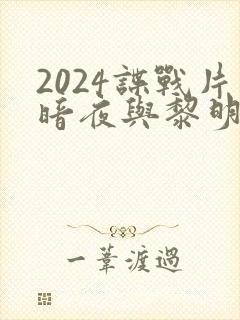 2024諜戰片
暗夜與黎明
一葦渡過